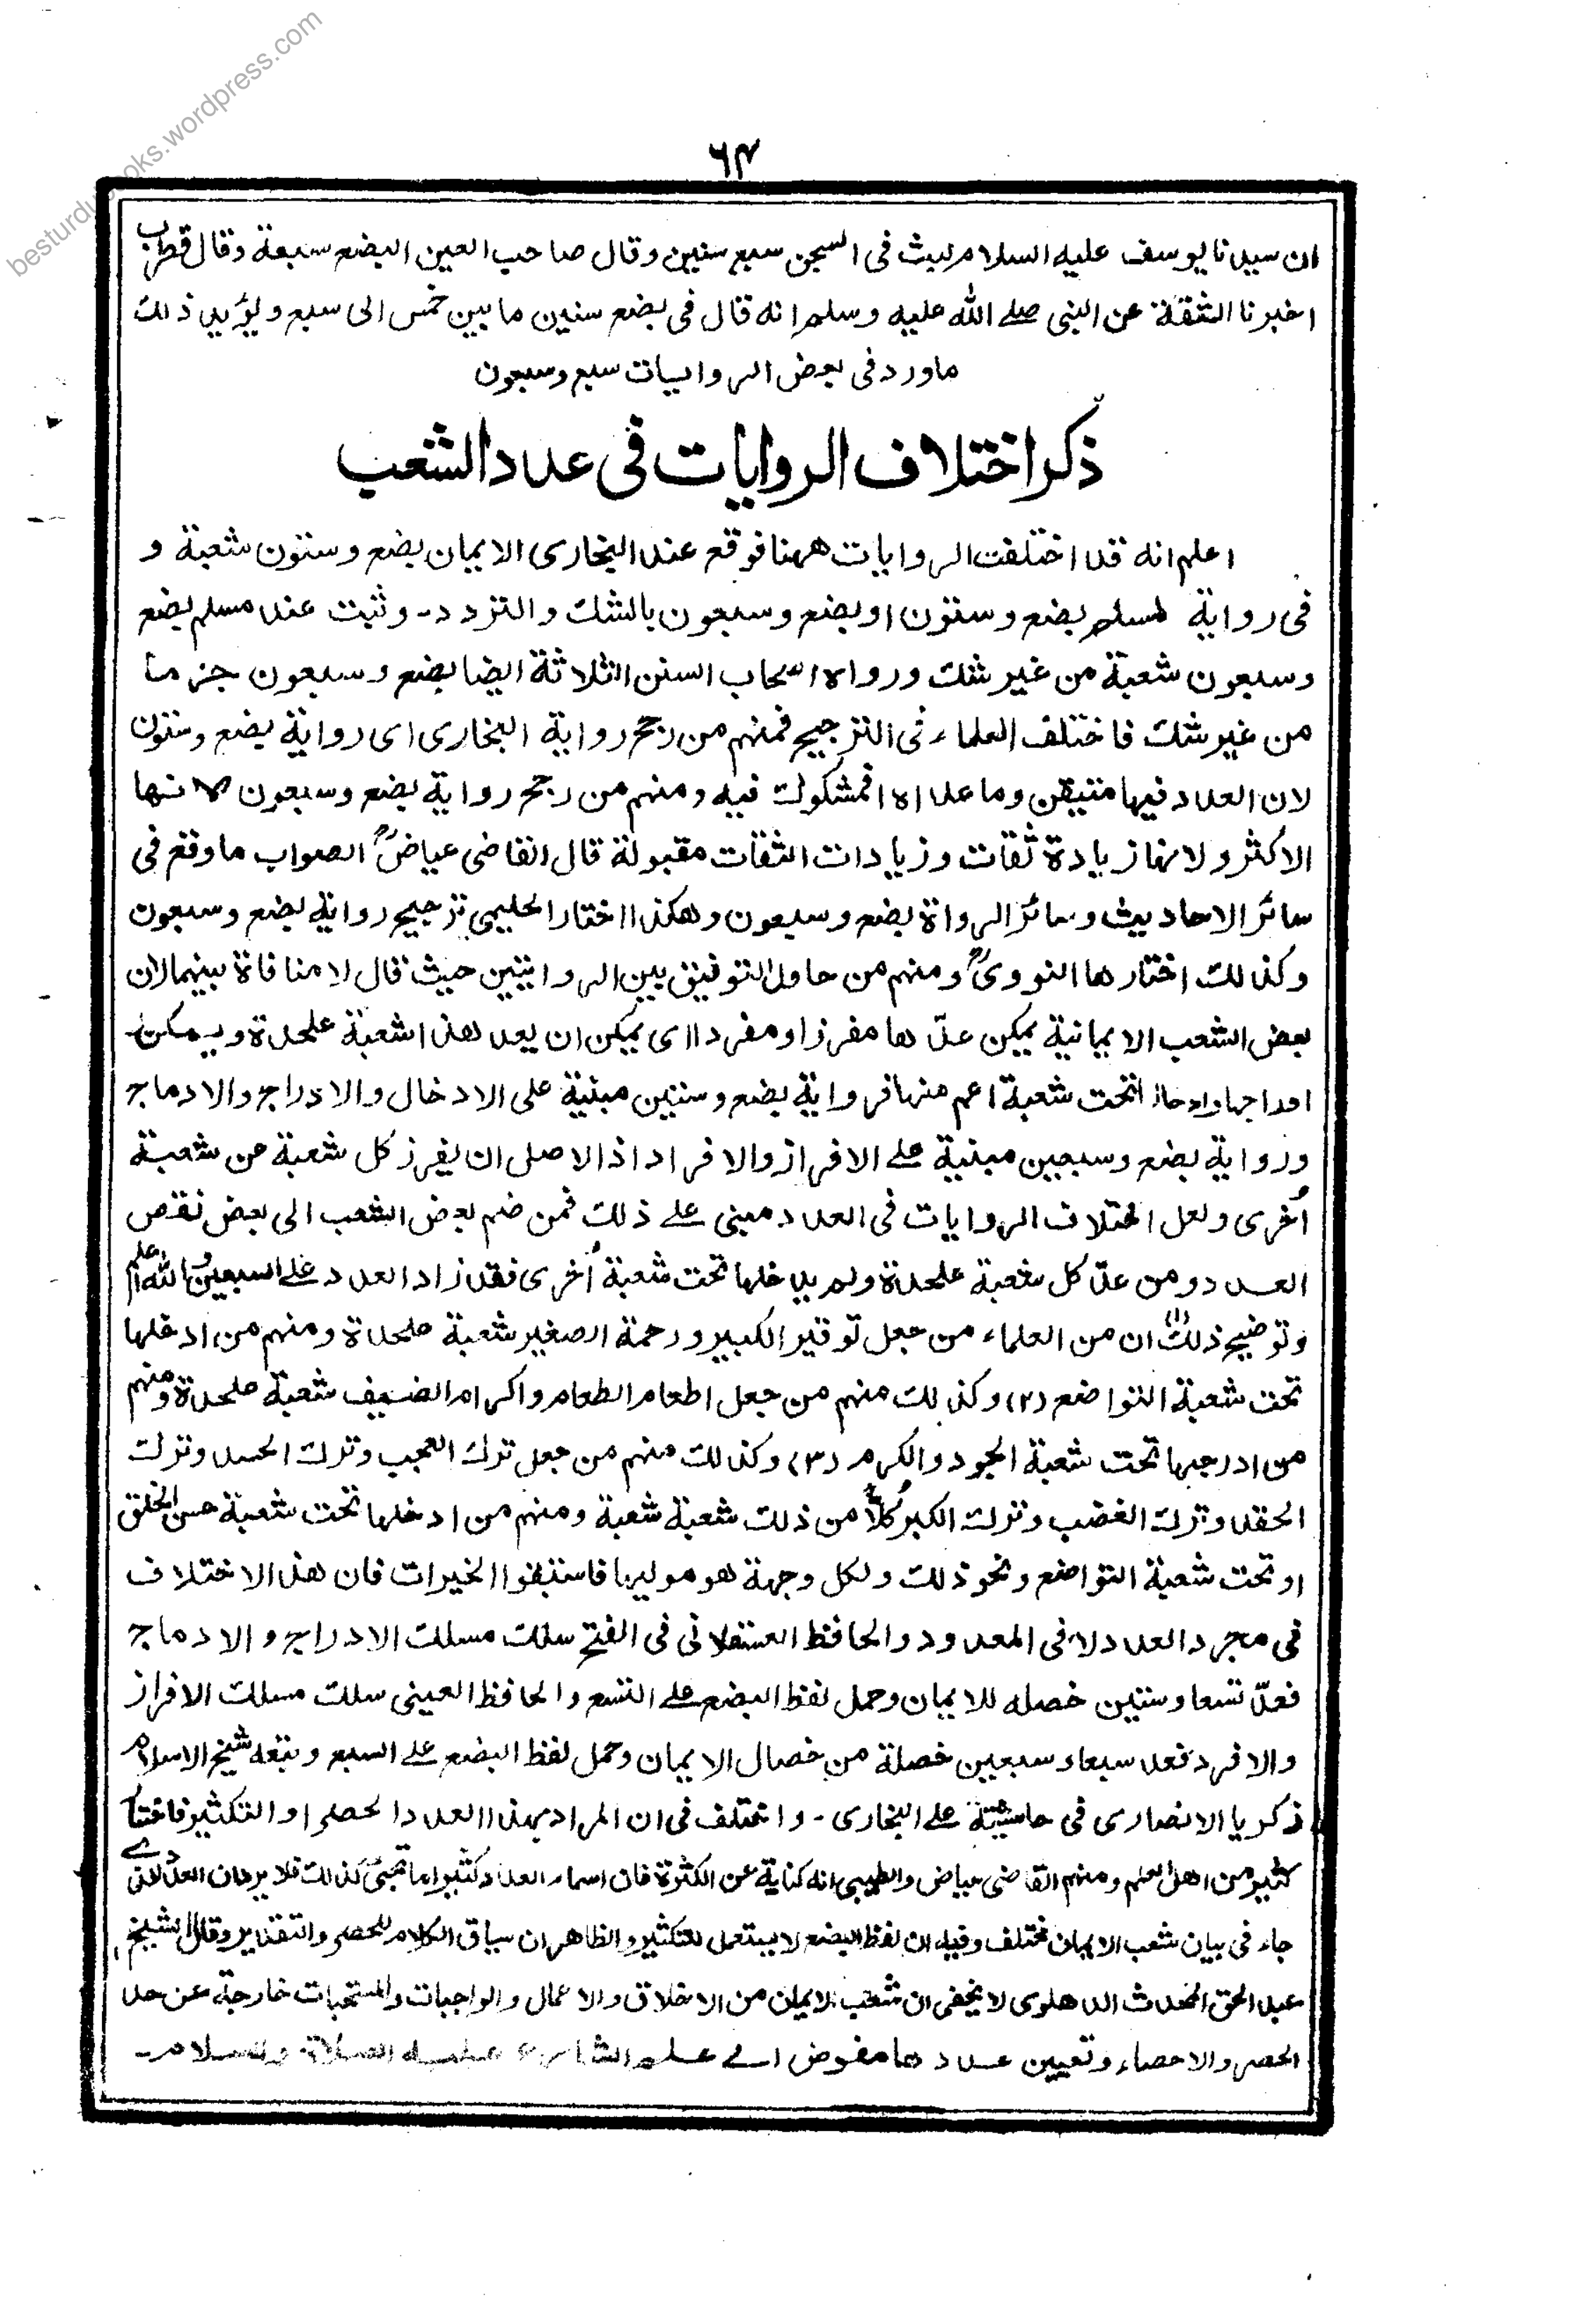 besturdubooks.wordpress.com
٦٤
ان سيدنا يوسف عليه السلام لبث فى السجن سبع سنين وقال صاحب العين البضع سبعة وقال قطرب
اخبرنا الثقة عن النبى صلے الله عليه وسلم انه قال فى بضع سنين ما بين خمس الى سبع ويؤيد ذلك
ماورد فى بعض الروايات سبع وسبعون
ذكر اختلاف الروايات فى عدد الشعب
اعلم انه قد اختلفت الروايات ههنا فوقع عند البخارى الايمان بضع وستون شعبة و
فى رواية لمسلم بضع وستون او بضع وسبعون بالشك والتردد۔ وثبت عند مسلم بضع
وسبعون شعبة من غير شك ورواه اصحاب السنن الثلاثة ايضا بضع وسبعون جزما
من غير شك فاختلف العلماء فى الترجيح فمنهم من رجح رواية البخارى اى رواية بضع وستون
لان العدد فيها متيقن وما عداه فمشكوك فيه ومنهم من رجح رواية بضع وسبعون لانها
الاكثر ولانها زيادة ثقات وزيادات الثقات مقبولة قال القاضى عياضؒ الصواب ماوقع فى
سائر الاحاديث وسائر الرواة بضع وسبعون وهكذا اختار الحليمى ترجيح رواية بضع وسبعون
وكذلك اختارها النووىؒ ومنهم من حاول التوفيق بين الروايتين حيث قال لا منافاة بينهما لان
بعض الشعب الايمانية يمكن عدّها مفرزا ومفردا اى يمكن ان يعد هذا شعبة علحدة ويمكن
ادراجها وادخالها تحت شعبة اعم منها فرواية بضع وستين مبنية على الادخال والادراج والادماج
ورواية بضع وسبعين مبنية علے الافراز والافراد اذ الاصل ان يفرز كل شعبة عن شعبة
اُخرى ولعل اختلاف الروايات فى العدد مبنى علے ذلك فمن ضم بعض الشعب الى بعض نقص
العدد ومن عدّ كل شعبة علحدة ولم يدخلها تحت شعبة اُخرى فقد زاد العدد علے السبعين والله اعلم
وتوضيح ذلك (۱) ان من العلماء من جعل توقير الكبير ورحمة الصغير شعبة علحدة ومنهم من ادخلها
تحت شعبة التواضع (۲) وكذلك منهم من جعل اطعام الطعام واكرام الضيف شعبة علحدة ومنهم
من ادرجها تحت شعبة الجود والكرم (۳) وكذلك منهم من جعل ترك العجب وترك الحسد وترك
الحقد وترك الغضب وترك الكبر كلاًّ من ذلك شعبة شعبة ومنهم من ادخلها تحت شعبة حسن الخلق
او تحت شعبة التواضع ونحو ذلك ولكل وجهة هو موليها فاستبقوا الخيرات فان هذا الاختلاف
فى مجرد العدد لا فى المعدود والحافظ العسقلانى فى الفتح سلك مسلك الادراج والادماج
فعدّ تسعا وستين خصله للايمان وحمل لفظ البضع علے التسع والحافظ العينى سلك مسلك الافراز
والافرد فعد سبعا وسبعين خصلة من خصال الايمان وحمل لفظ البضع علے السبع وتبعه شيخ الاسلام
زكريا الانصارى فى حاشيته علے البخارى۔ واختلف فى ان المراد بهذا العدد الحصر او التكثير فاختار
كثير من اهل العلم ومنهم القاضى عياض والطيبى انه كناية عن الكثرة فان اسماء العدد كثيرا ما تجئ كذلك فلا يرد ان العدد الذى
جاء فى بيان شعب الايمان مختلف وفيه ان لفظ البضع لا يستعمل للتكثير والظاهر ان سياق الكلام للحصر والتقدير وقال الشيخ
عبد الحق المحدث الدهلوى لا يخفى ان شعب الايمان من الاخلاق والاعمال والواجبات والمستحبات خارجة عن حد
الحصر والاحصاء وتعيين عددها مفوض الے علم الشارع عليه الصلاة والسلام۔